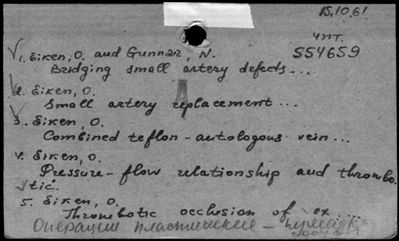 15.10.61
чит.
554659
1. Eiken, O. and Gunnar, N.
Bridging small artery defects...
2. Eiken, O.
Small artery replacement...
3. Eiken, O.
Combined teflon - autologous vein...
v. Eiken, O.
Pressure - flow relationship and thrombo.
tic.
5. Eiken, O.
Thrombotic occlusion of ex....
Операции пластические -